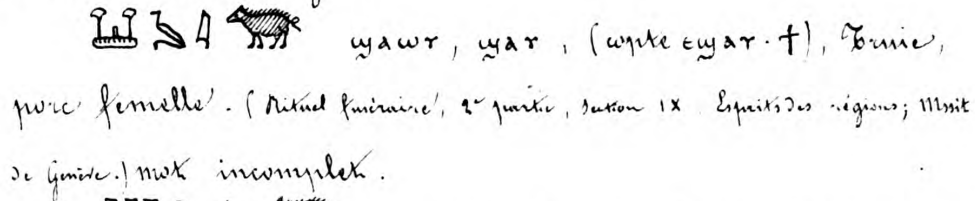 𓆷 𓃟 ϣⲁⲱⲩ, ϣⲁⲩ, (copte ⲉϣⲁⲩ · †), Truie,
porc femelle. (Rituel funéraire, 2e partie, section IX Esprits des régions; Mssit
de Genève.) mot incomplet.